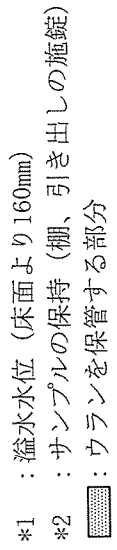 *1 ：溢水水位（床面より160mm）
*2 ：サンプルの保持（棚、引き出しの施錠）
：ウランを保管する部分